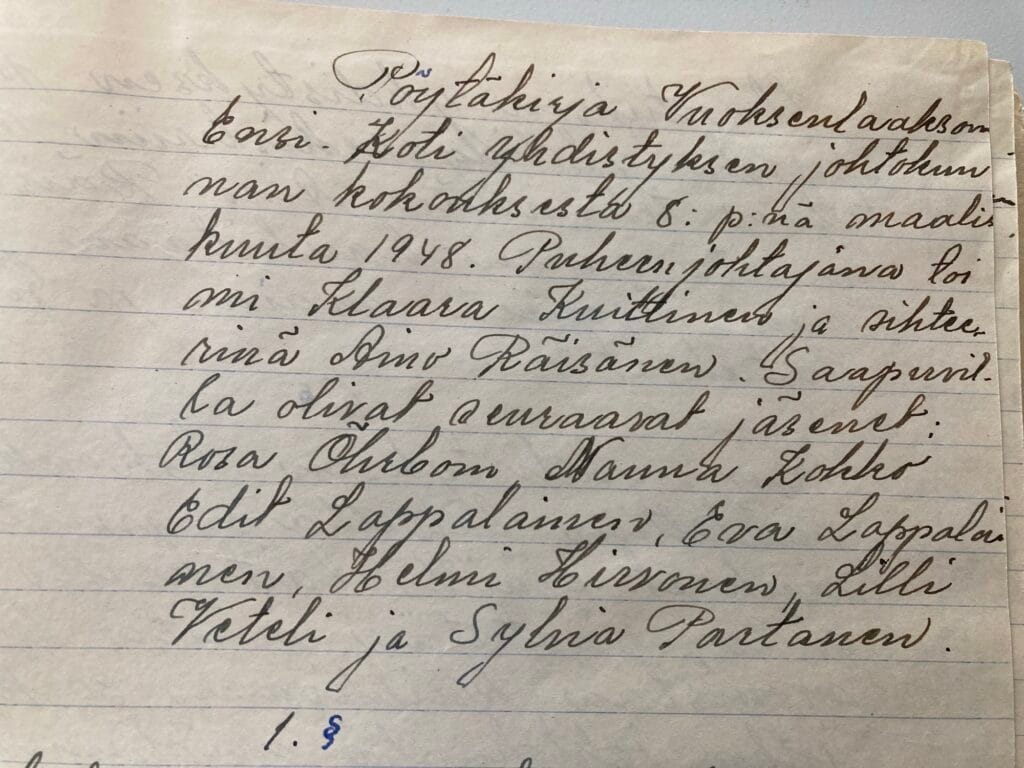 Pöytäkirja Vuoksenlaakson
Ensi-Koti yhdistyksen johtokun
nan kokouksesta 8: p:nä maalis
kuuta 1948. Puheenjohtajana toi
mi Klaara Kuittinen ja sihtee-
rinä Aino Räisänen. Saapuvil-
la olivat seuraavat jäsenet:
Rosa Öhrbom, Nanna Kokko
Edit Lappalainen, Eva Lappalai
nen, Helmi Hirvonen, Lilli
Veteli ja Sylvia Partanen.
1. §